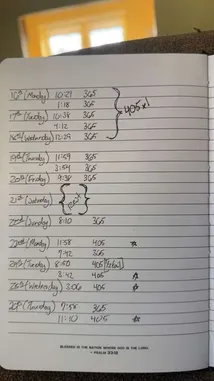 16th (Monday) 10:21 365
1:18 365
17th (Tuesday) 10:38 365
4:12 365
18th (Wednesday) 12:29 365
405x1
19th (Thursday) 11:59 365
3:59 365
20th (Friday) 9:38 365
21st (Saturday)
22nd (Sunday) 8:10 365
(Monday) 11:58 405 ☆
7:42 365
24th (Tuesday) 8:50 405
3:42 405
25th (Wednesday) 3:06 405
(Thursday) 7:58 365
11:10 405 ☆
BLESSED IS THE NATION WHOSE GOD IS THE LORD.
- PSALM 33:12